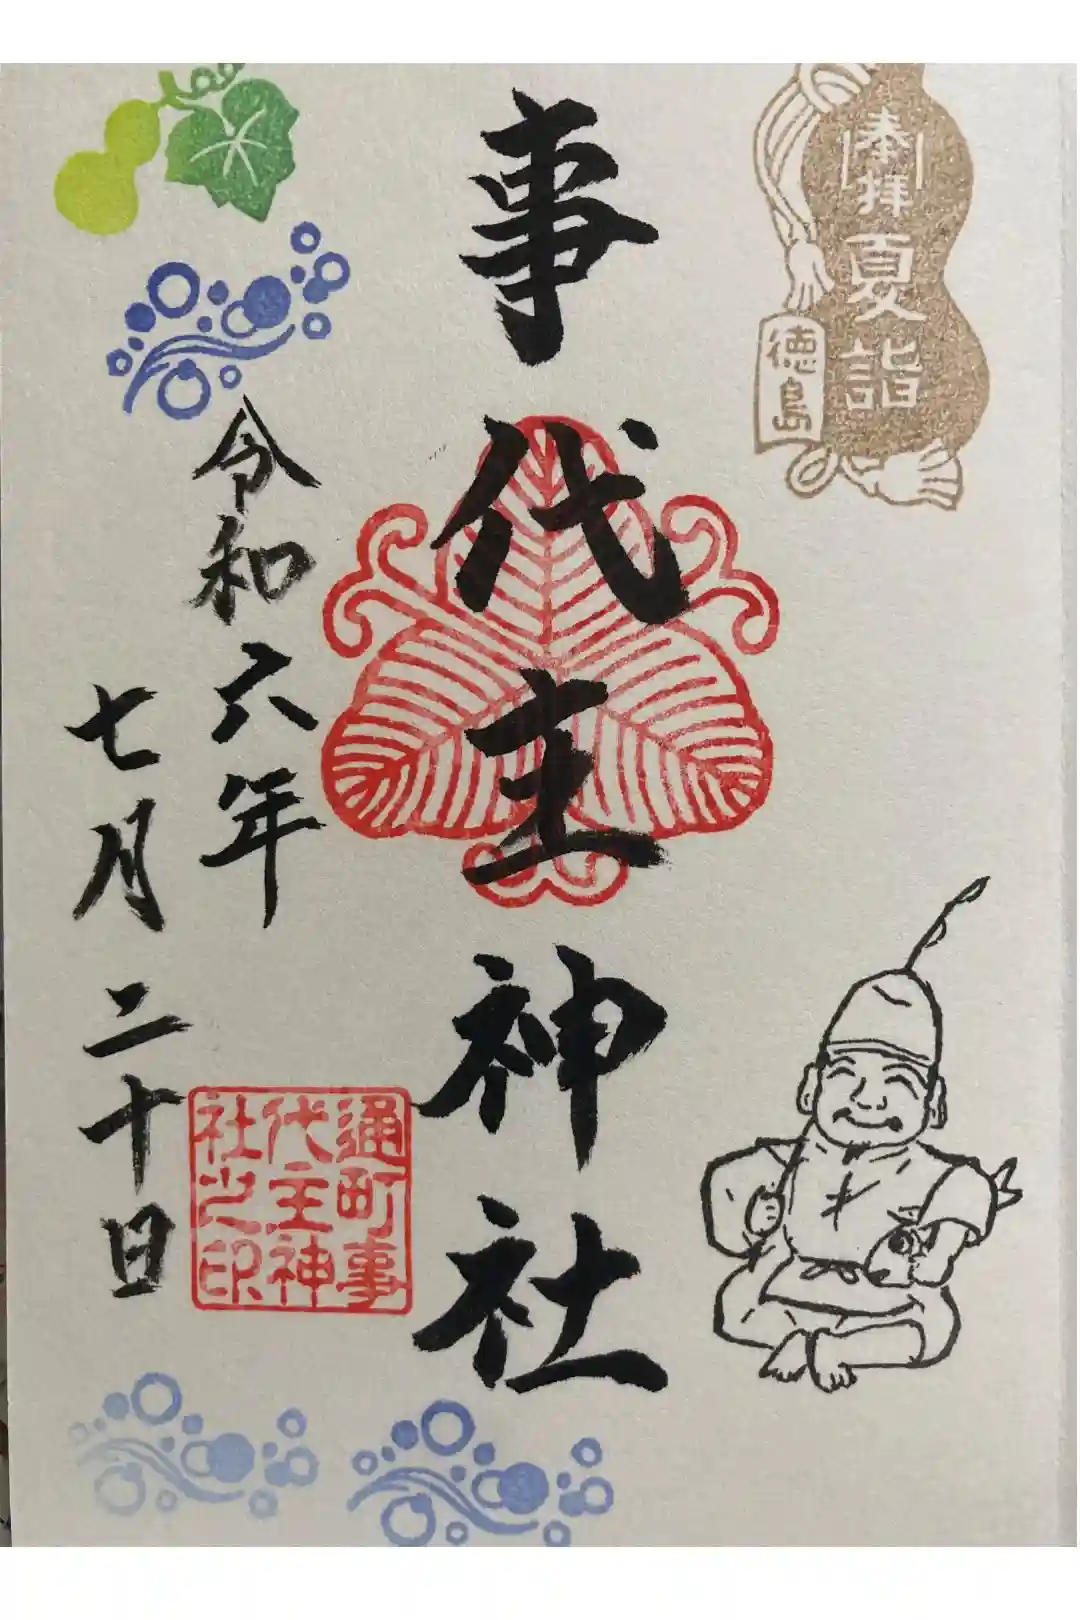 奉拝
夏詣
徳島
事代主神社
令和六年
七月二十日
通町事
代主神
社之印